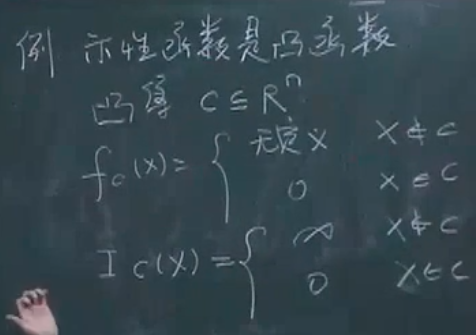 例 示性函数是凸函数
凸集 C ⊆ Rⁿ
f_C(x) = { 无定义 x ∉ C
0 x ∈ C
I_C(x) = { ∞ x ∉ C
0 x ∈ C